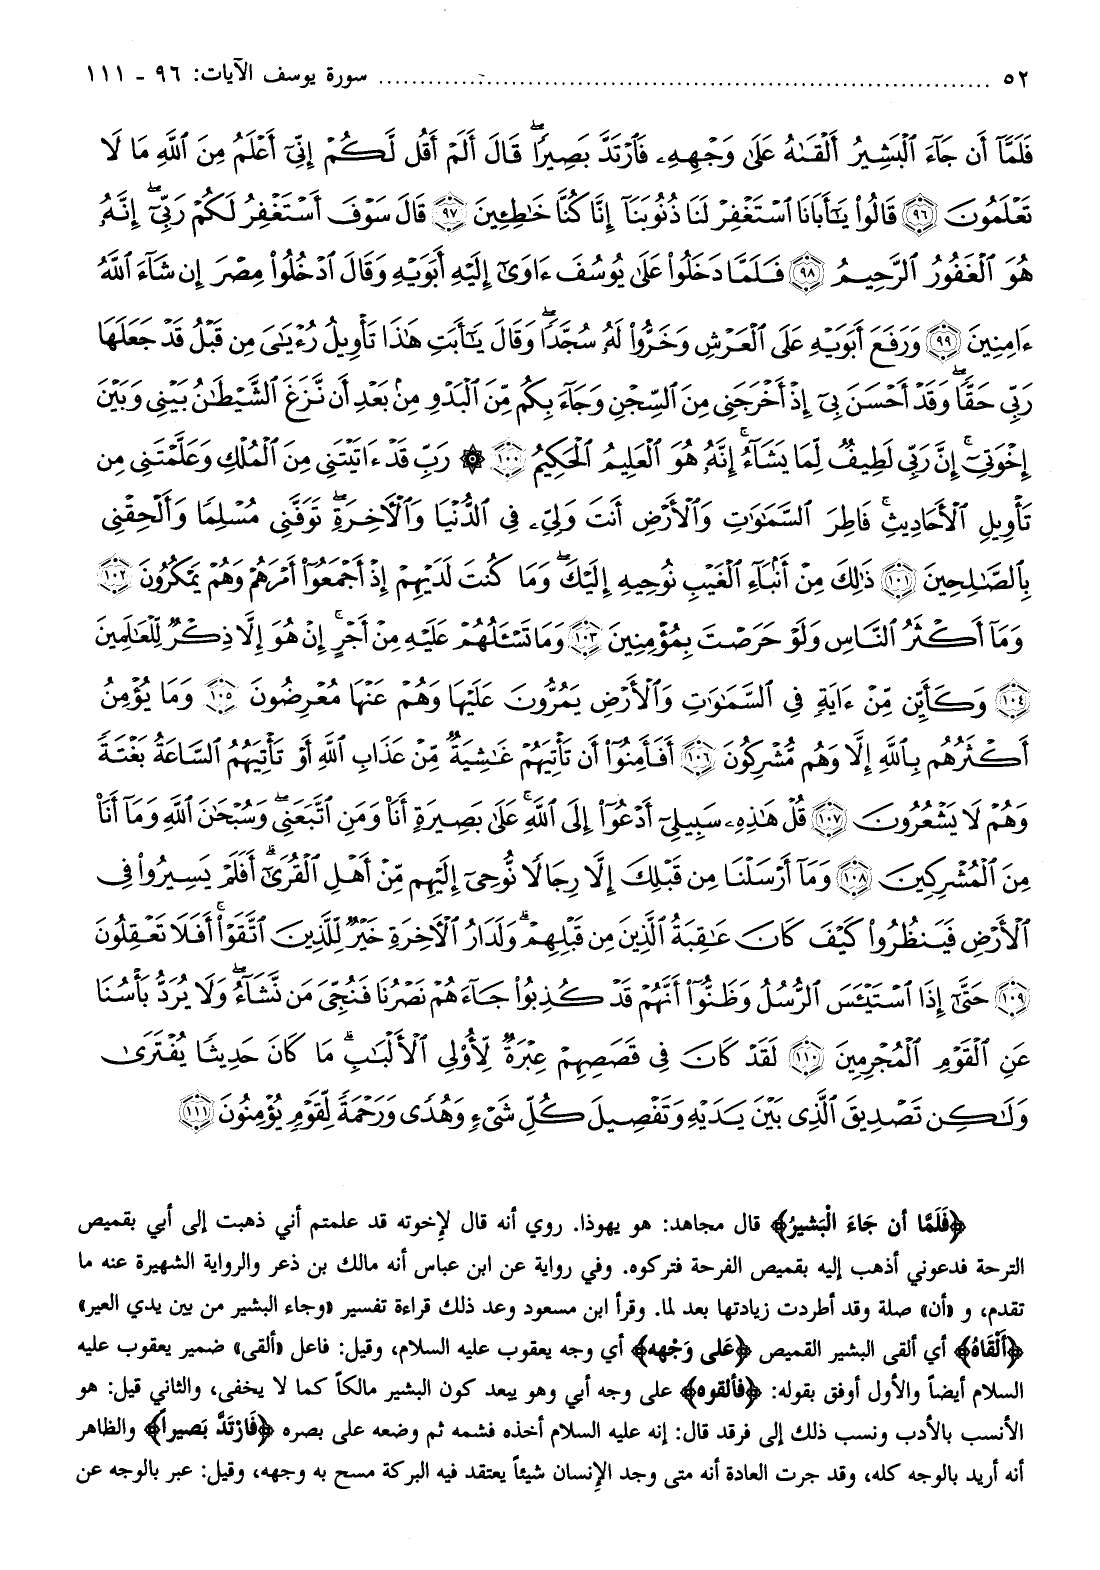 ٥٢ ........................................................................ سورة يوسف الآيات: ٩٦ - ١١١
فَلَمَّآ أَن جَآءَ ٱلْبَشِيرُ أَلْقَىٰهُ عَلَىٰ وَجْهِهِۦ فَٱرْتَدَّ بَصِيرًا ۖ قَالَ أَلَمْ أَقُل لَّكُمْ إِنِّىٓ أَعْلَمُ مِنَ ٱللَّهِ مَا لَا
تَعْلَمُونَ ﴿٩٦﴾ قَالُوا۟ يَٰٓأَبَانَا ٱسْتَغْفِرْ لَنَا ذُنُوبَنَآ إِنَّا كُنَّا خَٰطِـِٔينَ ﴿٩٧﴾ قَالَ سَوْفَ أَسْتَغْفِرُ لَكُمْ رَبِّىٓ ۖ إِنَّهُۥ
هُوَ ٱلْغَفُورُ ٱلرَّحِيمُ ﴿٩٨﴾ فَلَمَّا دَخَلُوا۟ عَلَىٰ يُوسُفَ ءَاوَىٰٓ إِلَيْهِ أَبَوَيْهِ وَقَالَ ٱدْخُلُوا۟ مِصْرَ إِن شَآءَ ٱللَّهُ
ءَامِنِينَ ﴿٩٩﴾ وَرَفَعَ أَبَوَيْهِ عَلَى ٱلْعَرْشِ وَخَرُّوا۟ لَهُۥ سُجَّدًا ۖ وَقَالَ يَٰٓأَبَتِ هَٰذَا تَأْوِيلُ رُءْيَٰىَ مِن قَبْلُ قَدْ جَعَلَهَا
رَبِّى حَقًّا ۖ وَقَدْ أَحْسَنَ بِىٓ إِذْ أَخْرَجَنِى مِنَ ٱلسِّجْنِ وَجَآءَ بِكُم مِّنَ ٱلْبَدْوِ مِنۢ بَعْدِ أَن نَّزَغَ ٱلشَّيْطَٰنُ بَيْنِى وَبَيْنَ
إِخْوَتِىٓ ۚ إِنَّ رَبِّى لَطِيفٌ لِّمَا يَشَآءُ ۚ إِنَّهُۥ هُوَ ٱلْعَلِيمُ ٱلْحَكِيمُ ﴿١٠٠﴾ ۞ رَبِّ قَدْ ءَاتَيْتَنِى مِنَ ٱلْمُلْكِ وَعَلَّمْتَنِى مِن
تَأْوِيلِ ٱلْأَحَادِيثِ ۚ فَاطِرَ ٱلسَّمَٰوَٰتِ وَٱلْأَرْضِ أَنتَ وَلِىِّۦ فِى ٱلدُّنْيَا وَٱلْءَاخِرَةِ ۖ تَوَفَّنِى مُسْلِمًا وَأَلْحِقْنِى
بِٱلصَّٰلِحِينَ ﴿١٠١﴾ ذَٰلِكَ مِنْ أَنۢبَآءِ ٱلْغَيْبِ نُوحِيهِ إِلَيْكَ ۖ وَمَا كُنتَ لَدَيْهِمْ إِذْ أَجْمَعُوٓا۟ أَمْرَهُمْ وَهُمْ يَمْكُرُونَ ﴿١٠٢﴾
وَمَآ أَكْثَرُ ٱلنَّاسِ وَلَوْ حَرَصْتَ بِمُؤْمِنِينَ ﴿١٠٣﴾ وَمَا تَسْـَٔلُهُمْ عَلَيْهِ مِنْ أَجْرٍ ۚ إِنْ هُوَ إِلَّا ذِكْرٌ لِّلْعَٰلَمِينَ
﴿١٠٤﴾ وَكَأَيِّن مِّنْ ءَايَةٍ فِى ٱلسَّمَٰوَٰتِ وَٱلْأَرْضِ يَمُرُّونَ عَلَيْهَا وَهُمْ عَنْهَا مُعْرِضُونَ ﴿١٠٥﴾ وَمَا يُؤْمِنُ
أَكْثَرُهُم بِٱللَّهِ إِلَّا وَهُم مُّشْرِكُونَ ﴿١٠٦﴾ أَفَأَمِنُوٓا۟ أَن تَأْتِيَهُمْ غَٰشِيَةٌ مِّنْ عَذَابِ ٱللَّهِ أَوْ تَأْتِيَهُمُ ٱلسَّاعَةُ بَغْتَةً
وَهُمْ لَا يَشْعُرُونَ ﴿١٠٧﴾ قُلْ هَٰذِهِۦ سَبِيلِىٓ أَدْعُوٓا۟ إِلَى ٱللَّهِ ۚ عَلَىٰ بَصِيرَةٍ أَنَا۠ وَمَنِ ٱتَّبَعَنِى ۖ وَسُبْحَٰنَ ٱللَّهِ وَمَآ أَنَا۠
مِنَ ٱلْمُشْرِكِينَ ﴿١٠٨﴾ وَمَآ أَرْسَلْنَا مِن قَبْلِكَ إِلَّا رِجَالًا نُّوحِىٓ إِلَيْهِم مِّنْ أَهْلِ ٱلْقُرَىٰٓ ۗ أَفَلَمْ يَسِيرُوا۟ فِى
ٱلْأَرْضِ فَيَنظُرُوا۟ كَيْفَ كَانَ عَٰقِبَةُ ٱلَّذِينَ مِن قَبْلِهِمْ ۗ وَلَدَارُ ٱلْءَاخِرَةِ خَيْرٌ لِّلَّذِينَ ٱتَّقَوْا۟ ۗ أَفَلَا تَعْقِلُونَ
﴿١٠٩﴾ حَتَّىٰٓ إِذَا ٱسْتَيْـَٔسَ ٱلرُّسُلُ وَظَنُّوٓا۟ أَنَّهُمْ قَدْ كُذِبُوا۟ جَآءَهُمْ نَصْرُنَا فَنُجِّىَ مَن نَّشَآءُ ۖ وَلَا يُرَدُّ بَأْسُنَا
عَنِ ٱلْقَوْمِ ٱلْمُجْرِمِينَ ﴿١١٠﴾ لَقَدْ كَانَ فِى قَصَصِهِمْ عِبْرَةٌ لِّأُو۟لِى ٱلْأَلْبَٰبِ ۗ مَا كَانَ حَدِيثًا يُفْتَرَىٰ
وَلَٰكِن تَصْدِيقَ ٱلَّذِى بَيْنَ يَدَيْهِ وَتَفْصِيلَ كُلِّ شَىْءٍ وَهُدًى وَرَحْمَةً لِّقَوْمٍ يُؤْمِنُونَ ﴿١١١﴾
﴿فَلَمَّا أن جَاءَ الْبَشيرُ﴾ قال مجاهد: هو يهوذا. روي أنه قال لإخوته قد علمتم أني ذهبت إلى أبي بقميص
الترحة فدعوني أذهب إليه بقميص الفرحة فتركوه. وفي رواية عن ابن عباس أنه مالك بن ذعر والرواية الشهيرة عنه ما
تقدم، و «أن» صلة وقد أطردت زيادتها بعد لما. وقرأ ابن مسعود وعد ذلك قراءة تفسير «وجاء البشير من بين يدي العير»
﴿أَلْقَاهُ﴾ أي ألقى البشير القميص ﴿عَلى وَجْهه﴾ أي وجه يعقوب عليه السلام، وقيل: فاعل «ألقى» ضمير يعقوب عليه
السلام أيضاً والأول أوفق بقوله: ﴿فألقوه﴾ على وجه أبي وهو يبعد كون البشير مالكاً كما لا يخفى، والثاني قيل: هو
الأنسب بالأدب ونسب ذلك إلى فرقد قال: إنه عليه السلام أخذه فشمه ثم وضعه على بصره ﴿فَارْتَدَّ بَصيراً﴾ والظاهر
أنه أريد بالوجه كله، وقد جرت العادة أنه متى وجد الإنسان شيئاً يعتقد فيه البركة مسح به وجهه، وقيل: عبر بالوجه عن